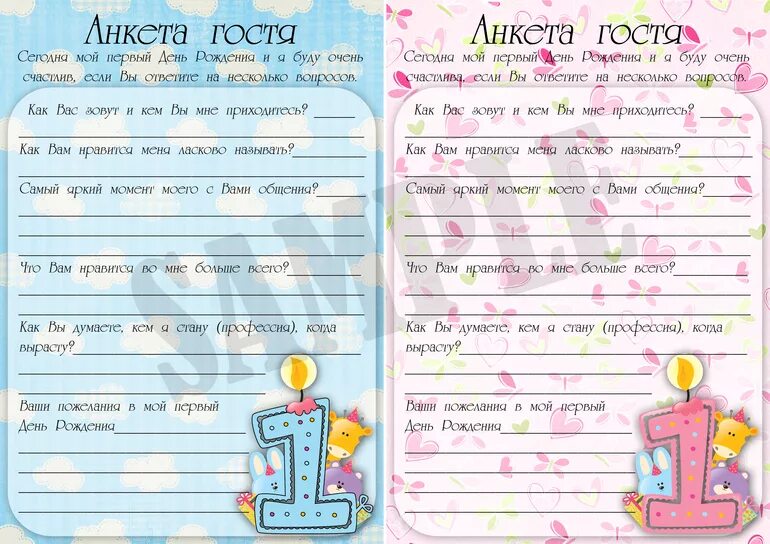 Анкета гостя
Сегодня мой первый День Рождения и я буду очень
счастлив, если Вы ответите на несколько вопросов.
Как Вас зовут и кем Вы мне приходитесь?
Как Вам нравится меня ласково называть?
Самый яркий момент моего с Вами общения?
Что Вам нравится во мне больше всего?
Как Вы думаете, кем я стану (профессия), когда
вырасту?
Ваши пожелания в мой первый
День Рождения
1
Анкета гостя
Сегодня мой первый День Рождения и я буду очень
счастлива, если Вы ответите на несколько вопросов.
Как Вас зовут и кем Вы мне приходитесь?
Как Вам нравится меня ласково называть?
Самый яркий момент моего с Вами общения?
Что Вам нравится во мне больше всего?
Как Вы думаете, кем я стану (профессия), когда
вырасту?
Ваши пожелания в мой первый
День Рождения
1
SAMPLE